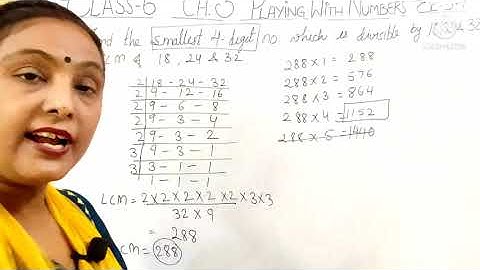 CLASS-6 CH.3 PLAYING WITH NUMBERS Ex
the smallest 4 digit no which is divisible by 18, 24, 32
LCM of 18, 24 & 32
2 18 - 24 - 32
2 9 - 12 - 16
2 9 - 6 - 8
2 9 - 3 - 4
2 9 - 3 - 2
3 9 - 3 - 1
3 3 - 1 - 1
1 - 1 - 1
288 x 1 = 288
288 x 2 = 576
288 x 3 = 864
288 x 4 = 1152
288 x 5 = 1440
LCM = 2 x 2 x 2 x 2 x 2 x 3 x 3
32 x 9
= 288
CM = 288